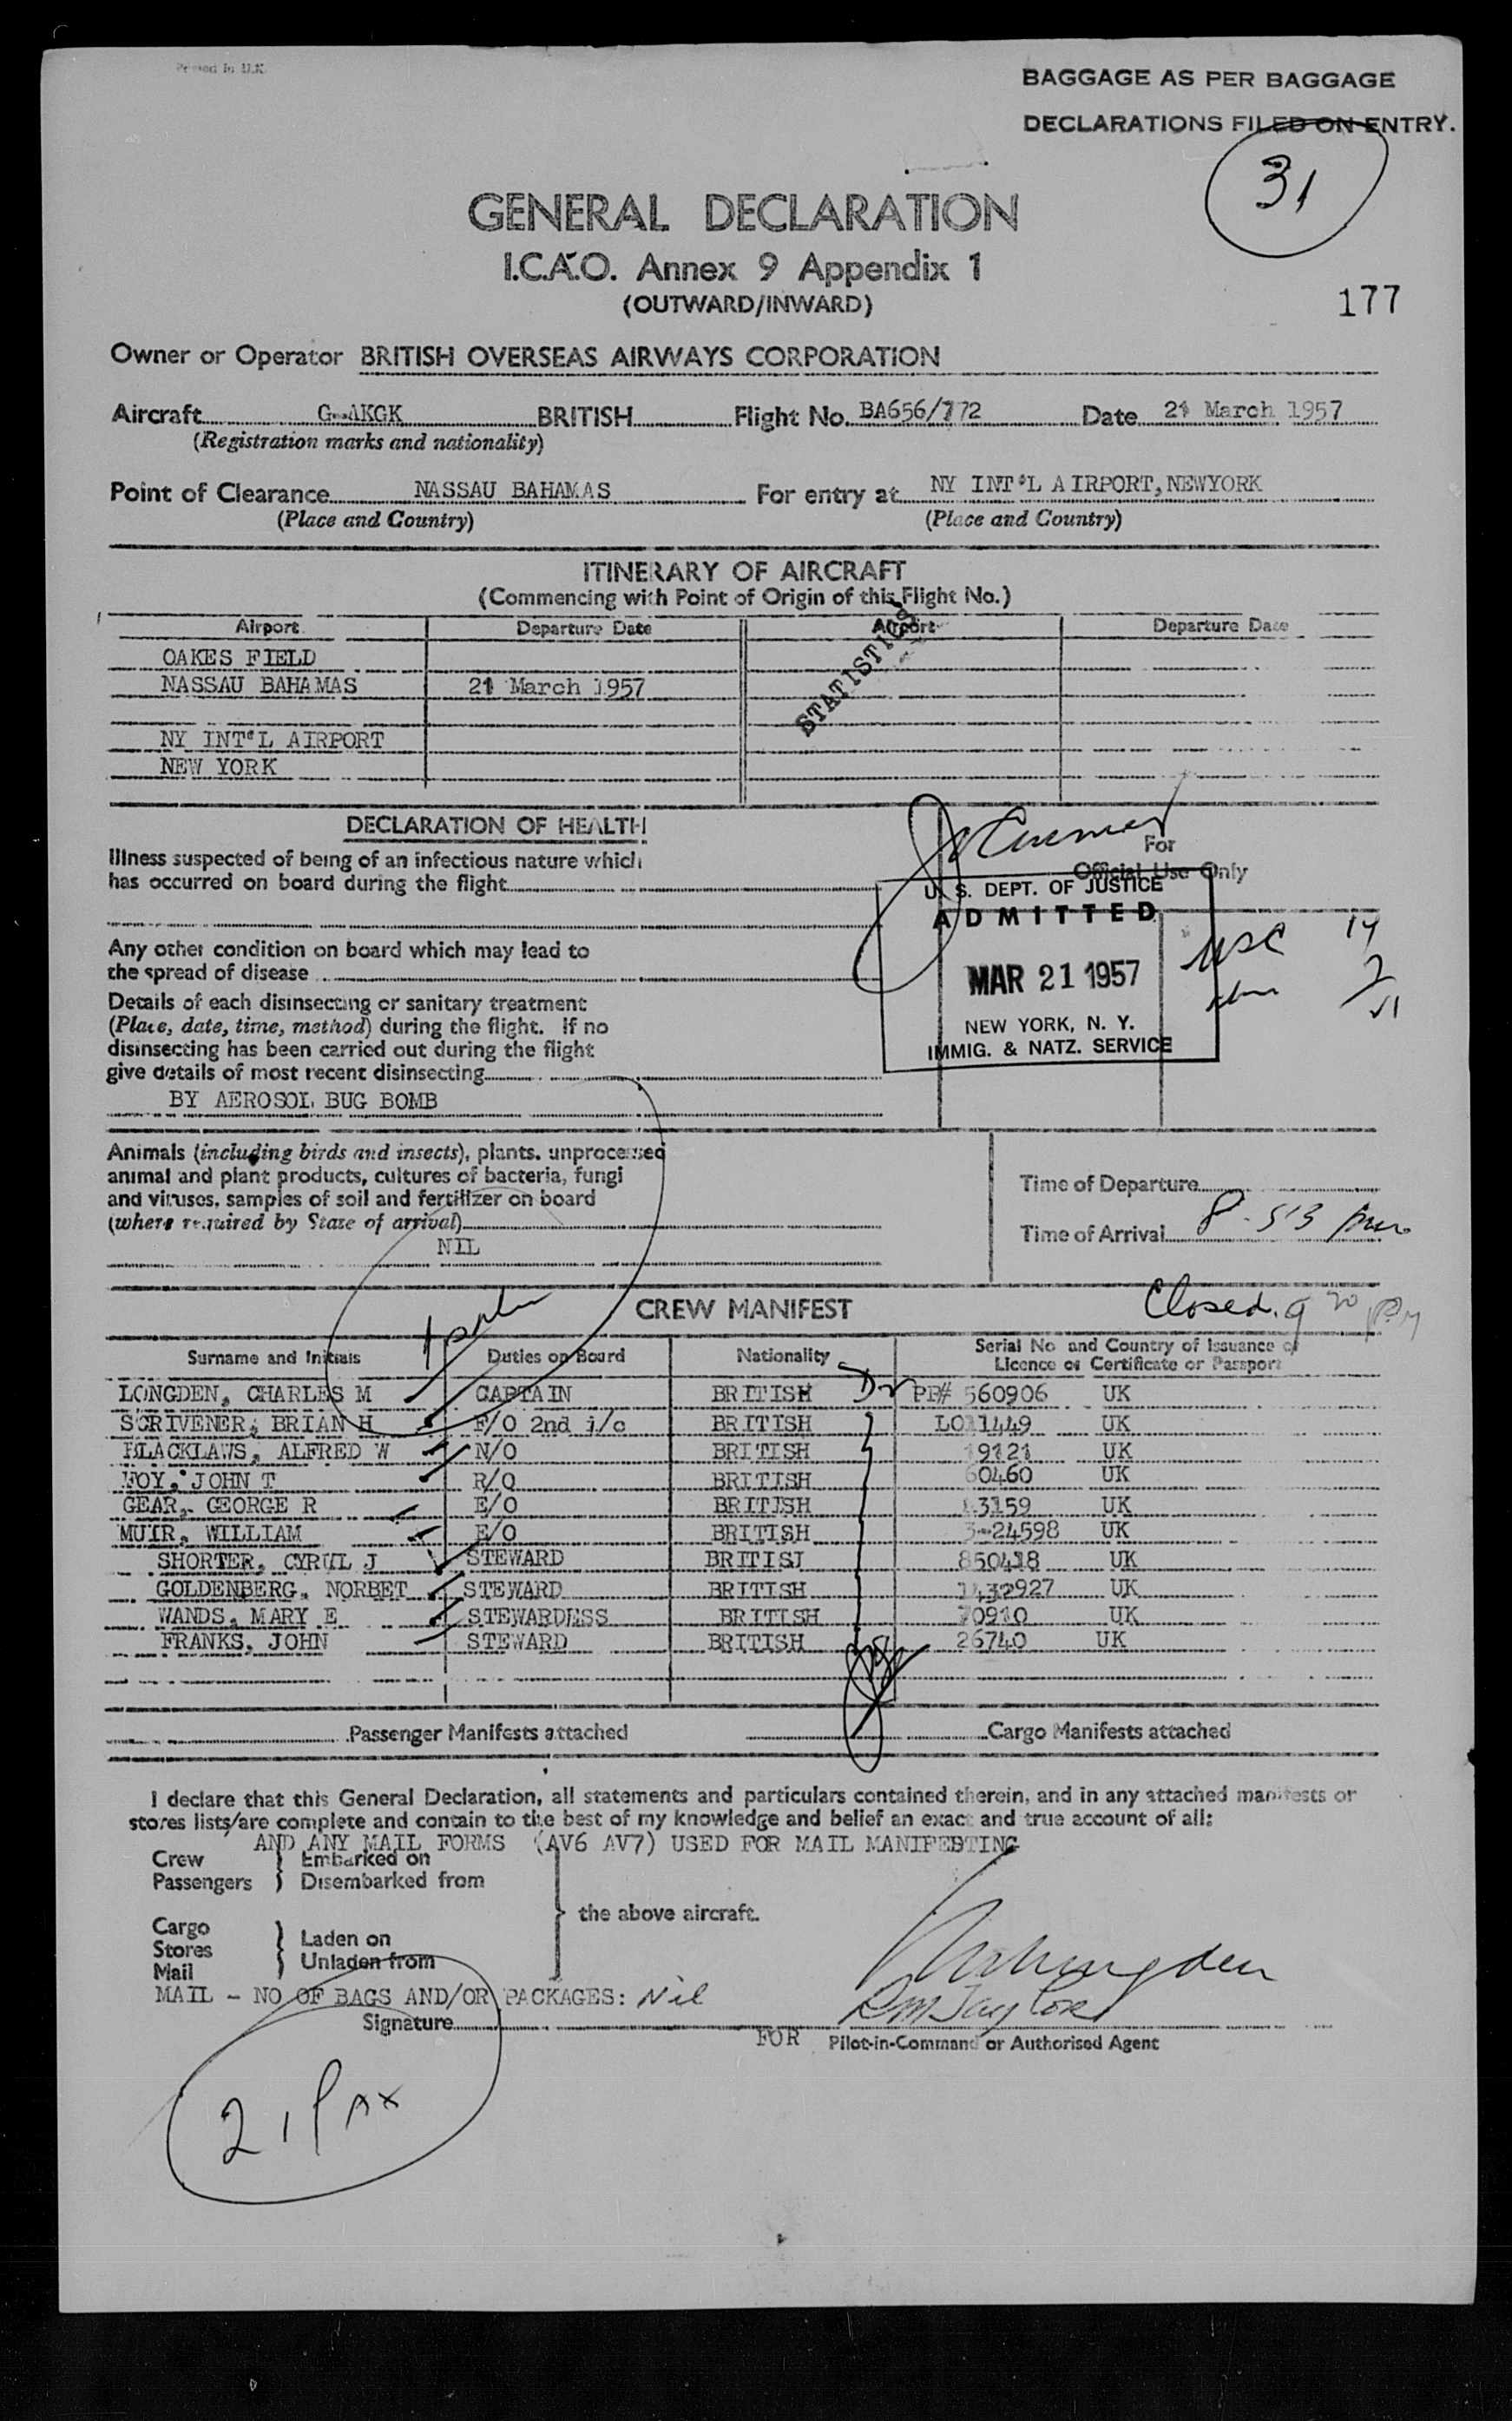 Printed in U.K.
BAGGAGE AS PER BAGGAGE
DECLARATIONS FILED ON ENTRY.
31
GENERAL DECLARATION
I.C.A.O. Annex 9 Appendix 1
(OUTWARD/INWARD)
177
Owner or Operator BRITISH OVERSEAS AIRWAYS CORPORATION
Aircraft G-AKGK BRITISH Flight No. BA656/772 Date 21 March 1957
(Registration marks and nationality)
Point of Clearance NASSAU BAHAMAS For entry at NY INT'L AIRPORT, NEWYORK
(Place and Country) (Place and Country)
ITINERARY OF AIRCRAFT
(Commencing with Point of Origin of this Flight No.)
Airport Departure Date Airport Departure Date
OAKES FIELD
NASSAU BAHAMAS 21 March 1957
NY INT'L AIRPORT
NEW YORK
DECLARATION OF HEALTH
For
Official Use Only
Illness suspected of being of an infectious nature which
has occurred on board during the flight
Any other condition on board which may lead to
the spread of disease
Details of each disinsecting or sanitary treatment
(Place, date, time, method) during the flight. If no
disinsecting has been carried out during the flight
give details of most recent disinsecting
BY AEROSOL BUG BOMB
U. S. DEPT. OF JUSTICE
ADMITTED
MAR 21 1957
NEW YORK, N. Y.
IMMIG. & NATZ. SERVICE
USC 14
Animals (including birds and insects), plants, unprocessed
animal and plant products, cultures of bacteria, fungi
and viruses, samples of soil and fertilizer on board
(where required by State of arrival)
NIL
Time of Departure
Time of Arrival 8-53 pm
CREW MANIFEST
Closed. 9 20 PM
Surname and Initials Duties on Board Nationality Serial No and Country of Issuance of
Licence or Certificate or Passport
LONGDEN, CHARLES M CAPTAIN BRITISH PP# 560906 UK
SCRIVENER, BRIAN H F/O 2nd i/c BRITISH LO11449 UK
BLACKLAWS, ALFRED W N/O BRITISH 19121 UK
FOY, JOHN T R/O BRITISH 60460 UK
GEAR, GEORGE R E/O BRITISH 13159 UK
MUIR, WILLIAM E/O BRITISH 3-24598 UK
SHORTER, CYRUL J STEWARD BRITISI 850418 UK
GOLDENBERG, NORBET STEWARD BRITISH 1432927 UK
WANDS, MARY E STEWARDESS BRITISH 70910 UK
FRANKS, JOHN STEWARD BRITISH 26740 UK
Passenger Manifests attached Cargo Manifests attached
I declare that this General Declaration, all statements and particulars contained therein, and in any attached manifests or
stores lists/are complete and contain to the best of my knowledge and belief an exact and true account of all:
AND ANY MAIL FORMS (AV6 AV7) USED FOR MAIL MANIFESTING
Crew Embarked on
Passengers Disembarked from
the above aircraft.
Cargo
Stores Laden on
Mail Unladen from
MAIL - NO OF BAGS AND/OR PACKAGES: Nil
Signature
FOR Pilot-in-Command or Authorised Agent
21 Pax